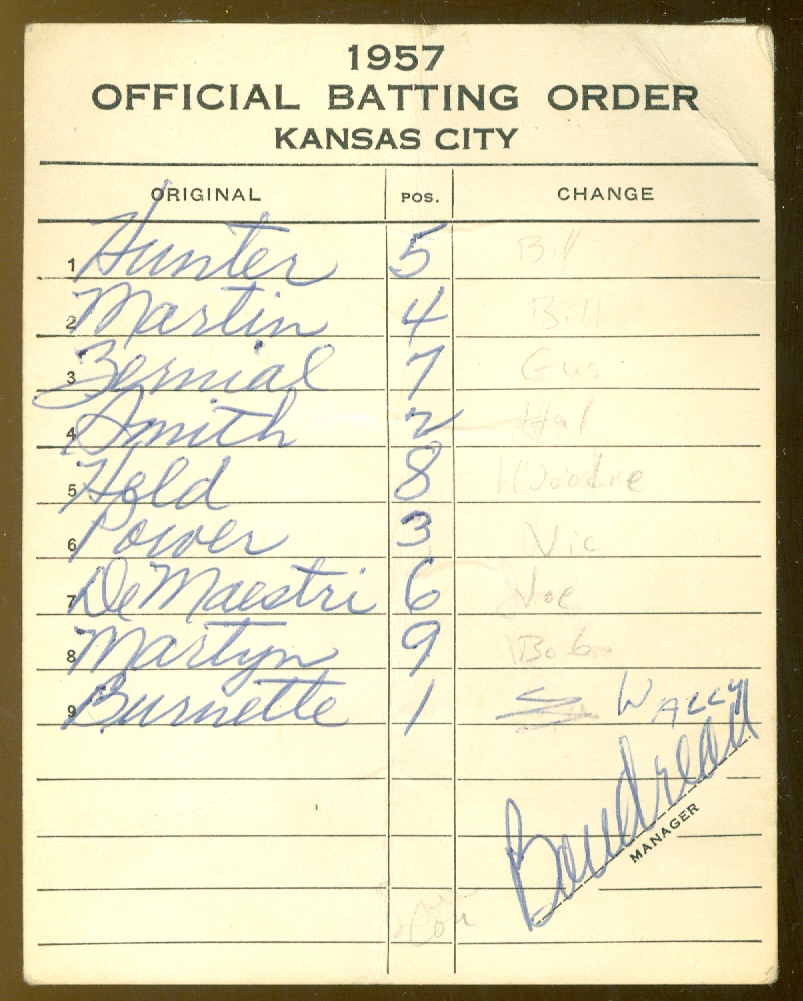 1957
OFFICIAL BATTING ORDER
KANSAS CITY
ORIGINAL POS. CHANGE
1 Hunter 5 Bill
2 Martin 4 Bill
3 Zernial 7 Gus
4 Smith 2 Hal
5 Held 8 Woodie
6 Power 3 Vic
7 DeMaestri 6 Joe
8 Martyn 9 Bob
9 Burnette 1 WALLY
Boudreau
MANAGER